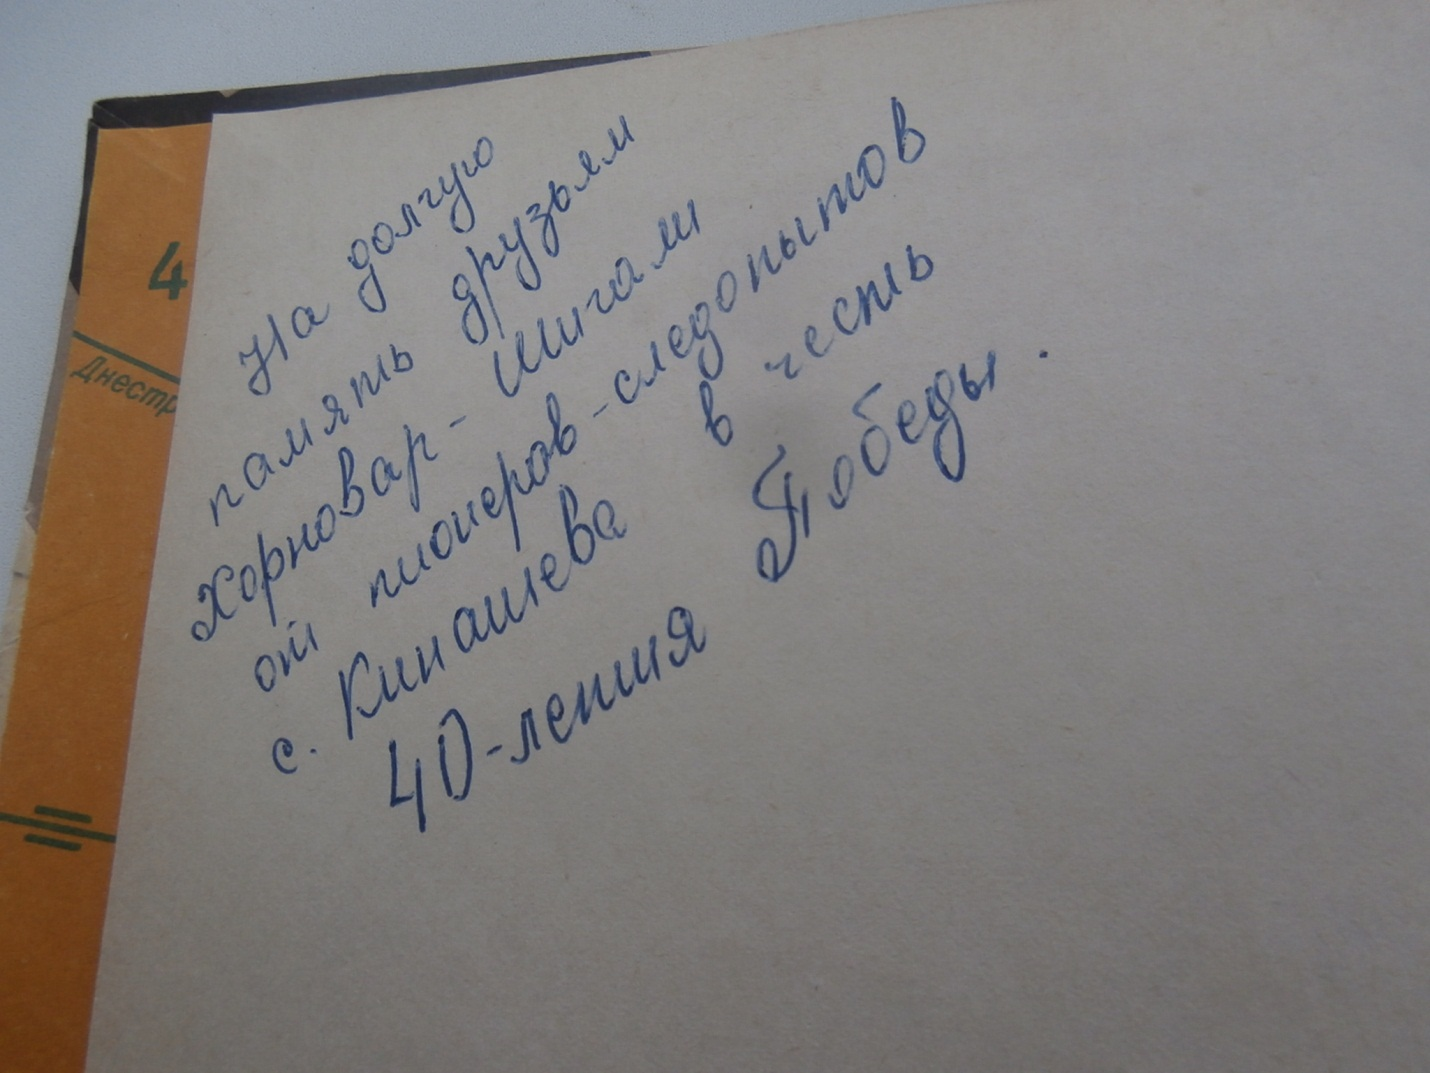 На долгую
память друзьям
Хорновар-Шигали
от пионеров-следопытов
с. Кинашева в честь
40-летия Победы.
4
Днестр